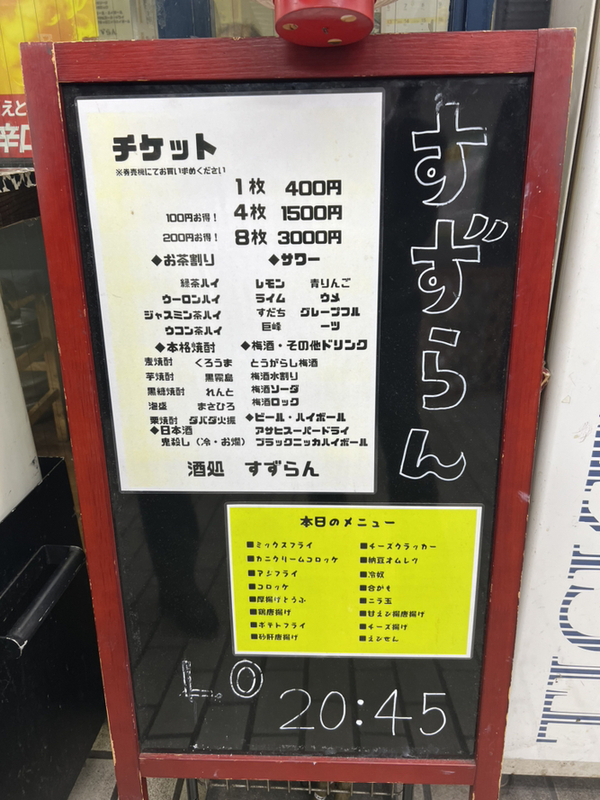 えど
辛口
すずらん
チケット
※券売機にてお買い求めください
1枚 400円
100円お得! 4枚 1500円
200円お得! 8枚 3000円
◆お茶割り
緑茶ハイ
ウーロンハイ
ジャスミン茶ハイ
ウコン茶ハイ
◆サワー
レモン 青りんご
ライム ウメ
すだち グレープフル
巨峰 ーツ
◆本格焼酎
麦焼酎 くろうま
芋焼酎 黒霧島
黒糖焼酎 れんと
海盛 まさひろ
栗焼酎 ダバダ火振
◆日本酒
鬼殺し(冷・お燗)
◆梅酒・その他ドリンク
とうがらし梅酒
梅酒水割り
梅酒ソーダ
梅酒ロック
◆ビール・ハイボール
アサヒスーパードライ
ブラックニッカハイボール
酒処 すずらん
本日のメニュー
■ミックスフライ
■カニクリームコロッケ
■アジフライ
■コロッケ
■厚揚げとうふ
■鶏唐揚げ
■ポテトフライ
■砂肝唐揚げ
■チーズクラッカー
■納豆オムレツ
■冷奴
■合がも
■ニラ玉
■甘えび唐唐揚げ
■チーズ揚げ
■えびせん
L.O
20:45